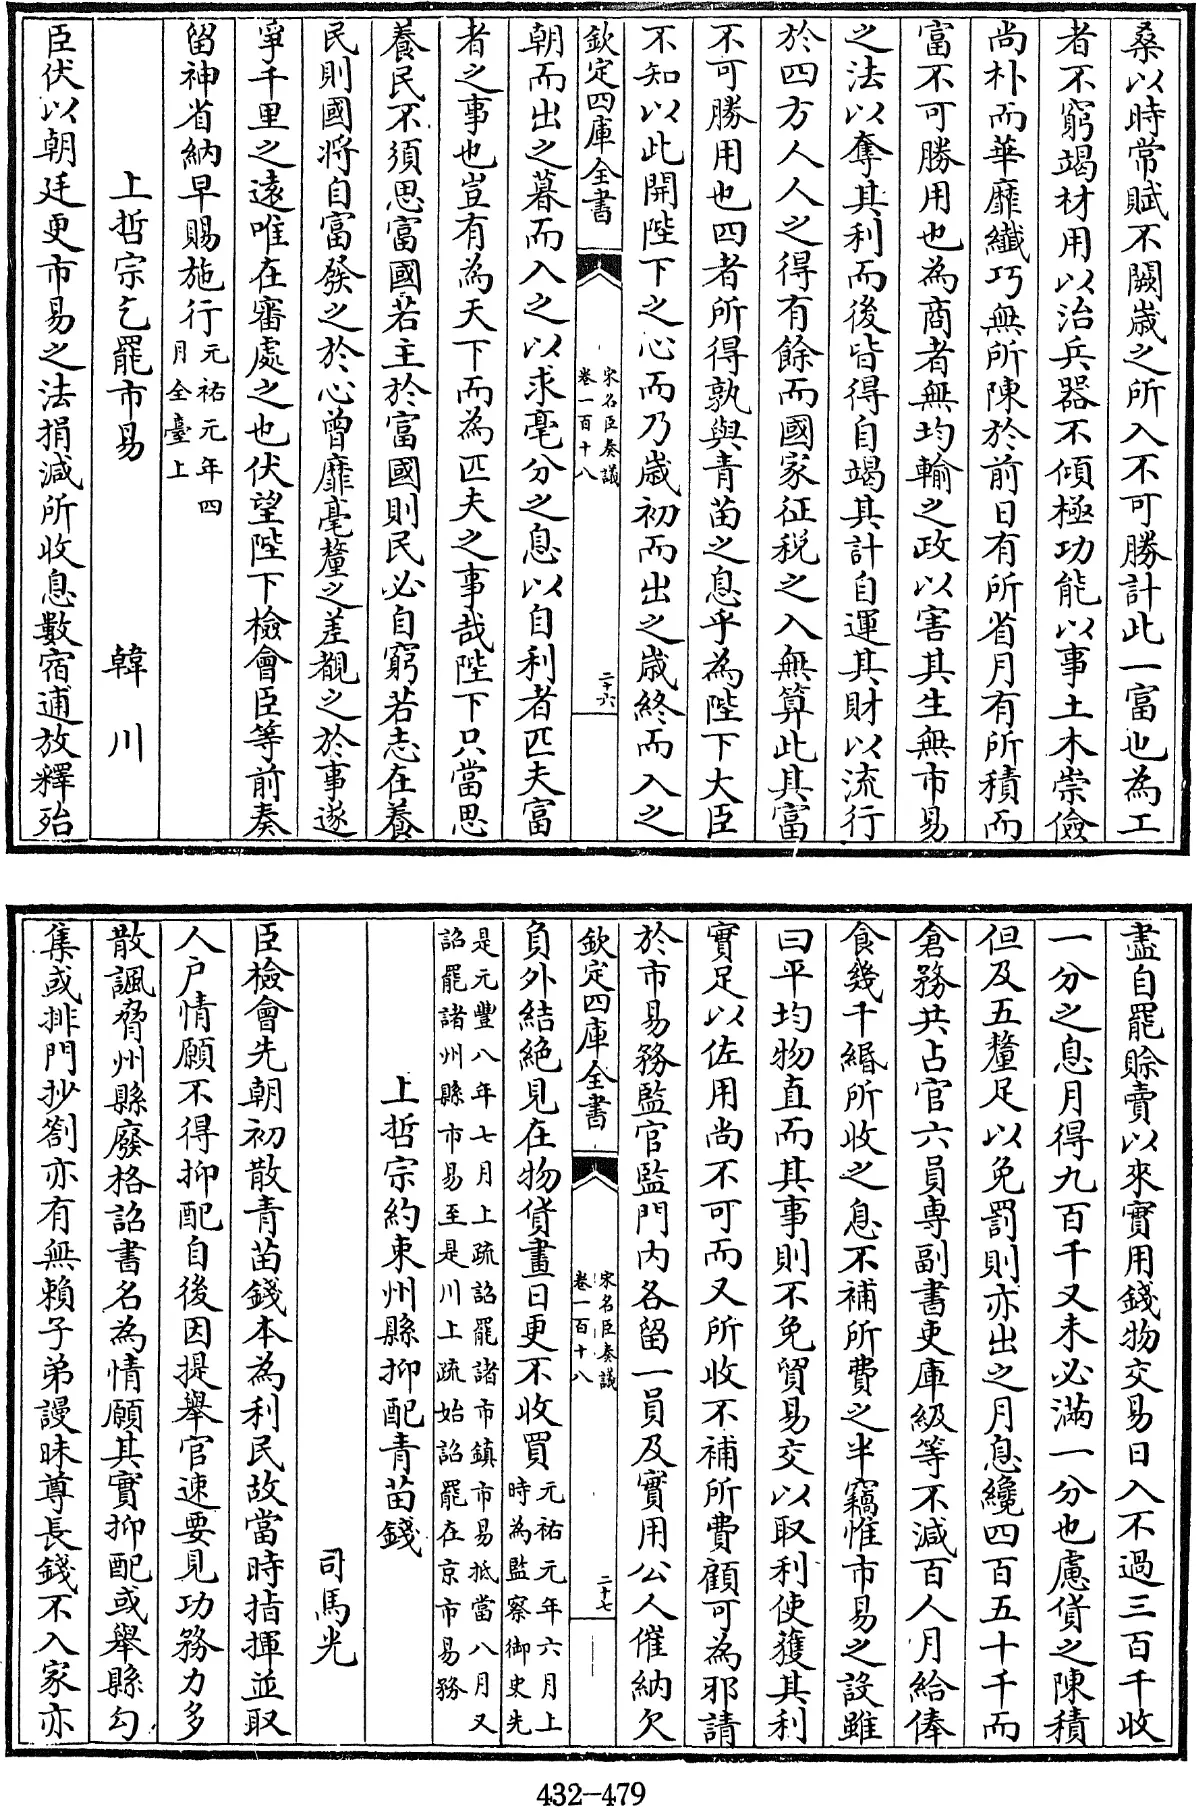 桑以時常賦不闕歲之所入不可勝計此一富也為工
者不窮竭材用以治兵器不傾極功能以事土木崇儉
尚朴而華靡纎巧無所陳於前日有所省月有所積而
富不可勝用也為商者無均輸之政以害其生無市易
之法以奪其利而後皆得自竭其計自運其財以流行
於四方人人之得有餘而國家征税之入無算此其富
不可勝用也四者所得孰與青苗之息乎為陛下大臣
不知以此開陛下之心而乃歲初而出之歲終而入之
欽定四庫全書
宋名臣奏議
卷一百十八
二十六
朝而出之暮而入之以求毫分之息以自利者匹夫富
者之事也豈有為天下而為匹夫之事哉陛下只當思
養民不須思富國若主於富國則民必自窮若志在養
民則國將自富發之於心曾靡毫釐之差覩之於事遂
寧千里之遠唯在審處之也伏望陛下檢會臣等前奏
留神省納早賜施行元祐元年四
月全臺上
上哲宗乞罷市易
韓川
臣伏以朝廷更市易之法捐減所收息數宿逋放釋殆
盡自罷賒賣以來實用錢物交易日入不過三百千收
一分之息月得九百千又未必滿一分也慮貨之陳積
但及五釐足以免罰則亦出之月息纔四百五十千而
倉務共占官六員専副書吏庫級等不減百人月給俸
食幾千緡所收之息不補所費之半竊惟市易之設雖
曰平均物直而其事則不免貿易交以取利使獲其利
實足以佐用尚不可而又所收不補所費顧可為邪請
於市易務監官監門内各留一員及實用公人催納欠
欽定四庫全書
宋名臣奏議
卷一百十八
二十七
負外結絶見在物貨畫日更不收買元祐元年六月上
時為監察御史先
是元豐八年七月上疏詔罷諸市鎮市易抵當八月又
詔罷諸州縣市易至是川上疏始詔罷在京市易務
上哲宗約束州縣抑配青苗錢
司馬光
臣檢會先朝初散青苗錢本為利民故當時指揮並取
人户情願不得抑配自後因提舉官速要見功務力多
散諷脅州縣廢格詔書名為情願其實抑配或舉縣勾
集或排門抄劄亦有無賴子弟謾昧尊長錢不入家亦
432-479